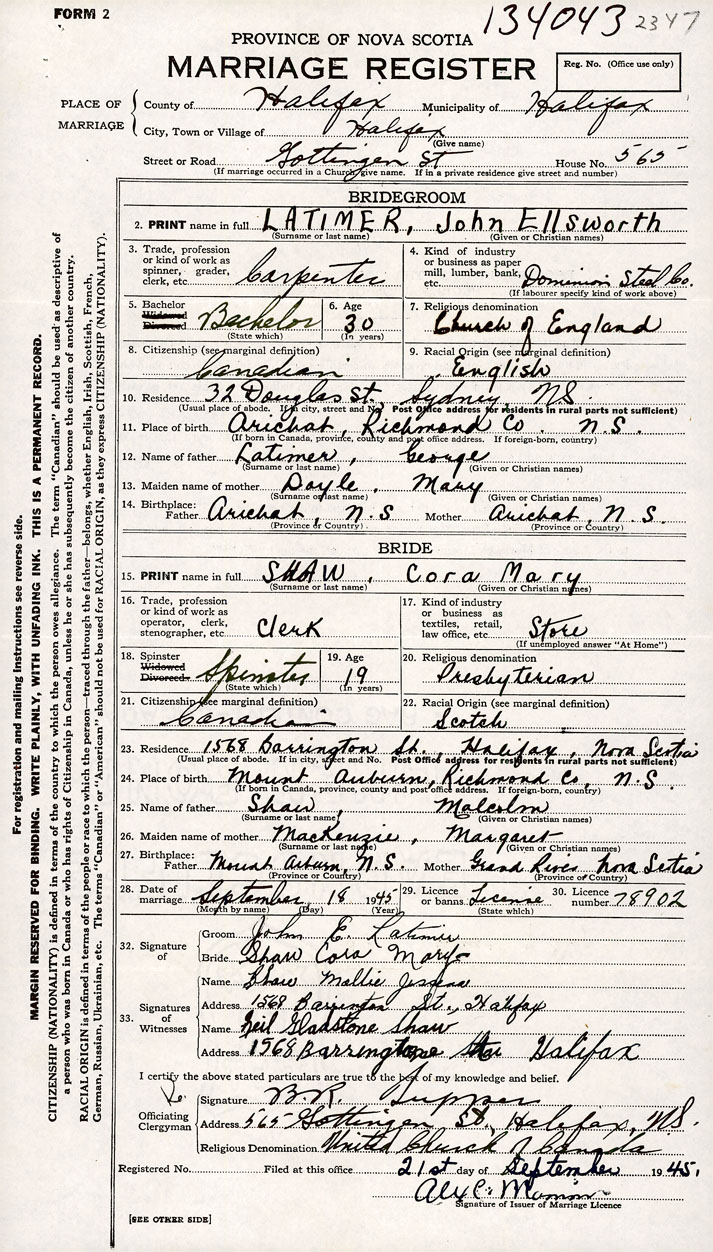 FORM 2
134043 2347
PROVINCE OF NOVA SCOTIA
MARRIAGE REGISTER
Reg. No. (Office use only)
PLACE OF MARRIAGE
County of Halifax Municipality of Halifax
City, Town or Village of Halifax
(Give name)
Street or Road Gottingen St House No. 565
(If marriage occurred in a Church give name. If in a private residence give street and number)
BRIDEGROOM
2. PRINT name in full LATIMER, John Ellsworth
(Surname or last name) (Given or Christian names)
3. Trade, profession or kind of work as spinner, grader, clerk, etc. Carpenter
4. Kind of industry or business as paper mill, lumber, bank, etc. Dominion Steel Co.
(If labourer specify kind of work above)
5. Bachelor Widowed Divorced Bachelor
(State which)
6. Age 30
(In years)
7. Religious denomination
Church of England
8. Citizenship (see marginal definition)
Canadian
9. Racial Origin (see marginal definition)
English
10. Residence 32 Douglas St., Sydney, NS.
(Usual place of abode. If in city, street and No. Post Office address for residents in rural parts not sufficient)
11. Place of birth Arichat, Richmond Co. N.S.
(If born in Canada, province, county and post office address. If foreign-born, country)
12. Name of father Latimer, George
(Surname or last name) (Given or Christian names)
13. Maiden name of mother Doyle, Mary
(Surname or last name) (Given or Christian names)
14. Birthplace: Father Arichat, N.S Mother Arichat, N.S.
(Province or Country) (Province or Country)
BRIDE
15. PRINT name in full SHAW, Cora Mary
(Surname or last name) (Given or Christian names)
16. Trade, profession or kind of work as operator, clerk, stenographer, etc. Clerk
17. Kind of industry or business as textiles, retail, law office, etc. Store
(If unemployed answer "At Home")
18. Spinster Widowed Divorced Spinster
(State which)
19. Age 19
(In years)
20. Religious denomination
Presbyterian
21. Citizenship (see marginal definition)
Canadian
22. Racial Origin (see marginal definition)
Scotch
23. Residence 1568 Barrington St., Halifax, Nova Scotia
(Usual place of abode. If in city, street and No. Post Office address for residents in rural parts not sufficient)
24. Place of birth Mount Auburn, Richmond Co, N.S.
(If born in Canada, province, county and post office address. If foreign-born, country)
25. Name of father Shaw, Malcolm
(Surname or last name) (Given or Christian names)
26. Maiden name of mother MacKenzie, Margaret
(Surname or last name) (Given or Christian names)
27. Birthplace: Father Mount Auburn, N.S. Mother Grand River Nova Scotia
(Province or Country) (Province or Country)
28. Date of marriage September 18 1945
(Month by name) (Day) (Year)
29. Licence or banns License
(State which)
30. Licence number 78902
32. Signature of
Groom John E. Latimer
Bride Shaw Cora Mary
33. Signatures of Witnesses
Name Shaw Mallie Jessena
Address 1568 Barrington St., Halifax
Name Neil Gladstone Shaw
Address 1568 Barrington Halifax
I certify the above stated particulars are true to the best of my knowledge and belief.
Officiating Clergyman
Signature B.R. Tupper
Address 565 Gottingen St., Halifax, N.S.
Religious Denomination United Church of Canada
Registered No. Filed at this office 21st day of September 1945.
Signature of Issuer of Marriage Licence
[SEE OTHER SIDE]
For registration and mailing instructions see reverse side.
MARGIN RESERVED FOR BINDING. WRITE PLAINLY, WITH UNFADING INK. THIS IS A PERMANENT RECORD.
CITIZENSHIP (NATIONALITY) is defined in terms of the country to which the person owes allegiance. The term "Canadian" should be used as descriptive of
a person who was born in Canada or who has rights of Citizenship in Canada, unless he or she has subsequently become the citizen of another country.
RACIAL ORIGIN is defined in terms of the people or race to which the person—traced through the father—belongs, whether English, Irish, Scottish, French,
German, Russian, Ukrainian, etc. The terms "Canadian" or "American" should not be used for RACIAL ORIGIN, as they express CITIZENSHIP (NATIONALITY).